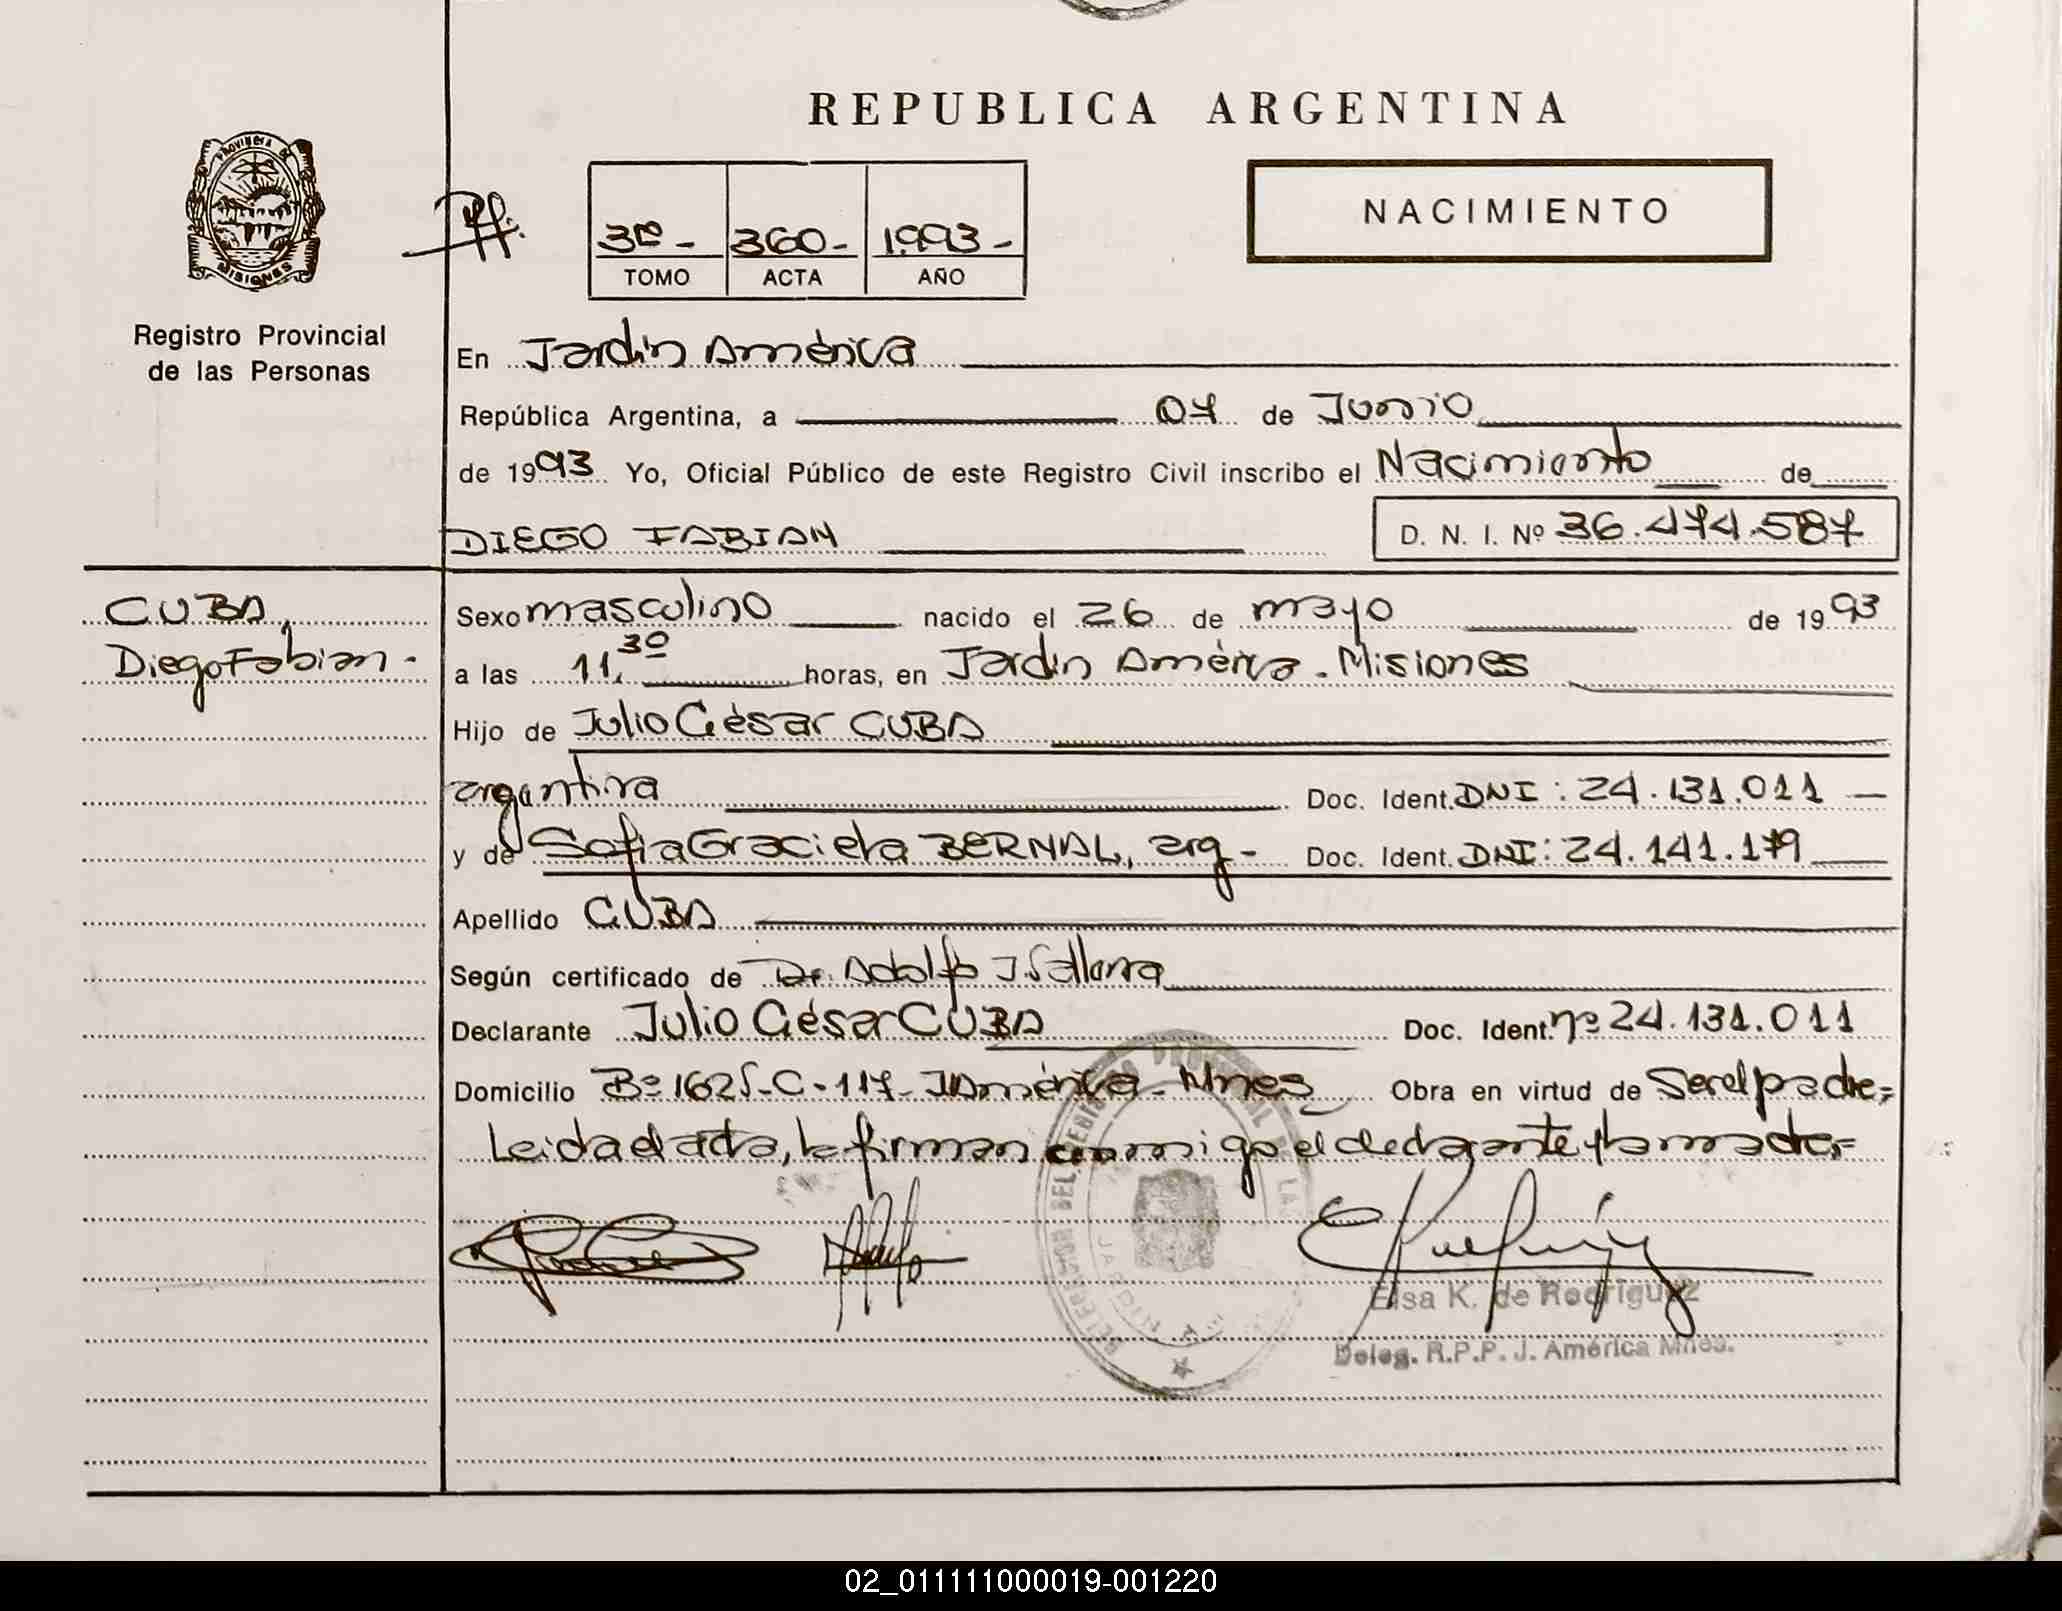 REPUBLICA ARGENTINA
PROVINCIA DE
MISIONES
Registro Provincial
de las Personas
3º - 360 - 1993 -
TOMO ACTA AÑO
NACIMIENTO
En Jardín América
República Argentina, a 07 de Junio
de 1993 Yo, Oficial Público de este Registro Civil inscribo el Nacimiento de
DIEGO FABIAN D. N. I. Nº 36.474.587
CUBA,
Diego Fabian -
Sexo masculino nacido el 26 de mayo de 1993
a las 11,30 horas, en Jardín América - Misiones
Hijo de Julio César CUBA
argentina Doc. Ident. DNI: 24.131.011 —
y de Sofia Graciela BERNAL, arg - Doc. Ident. DNI: 24.141.179
Apellido CUBA
Según certificado de Dr. Adolfo J.
Declarante Julio César CUBA Doc. Ident. nº 24.131.011
Domicilio Bº 1625-C-117- J América - Mnes Obra en virtud de Ser el padre,=
Leida el acta, la firman conmigo el declarante y la madre,=
REGISTRO PROVINCIAL DE LAS
DEL
JARDIN A
Elsa K. de Rodriguez
Deleg. R.P.P. J. América Mnes.
02_011111000019-001220